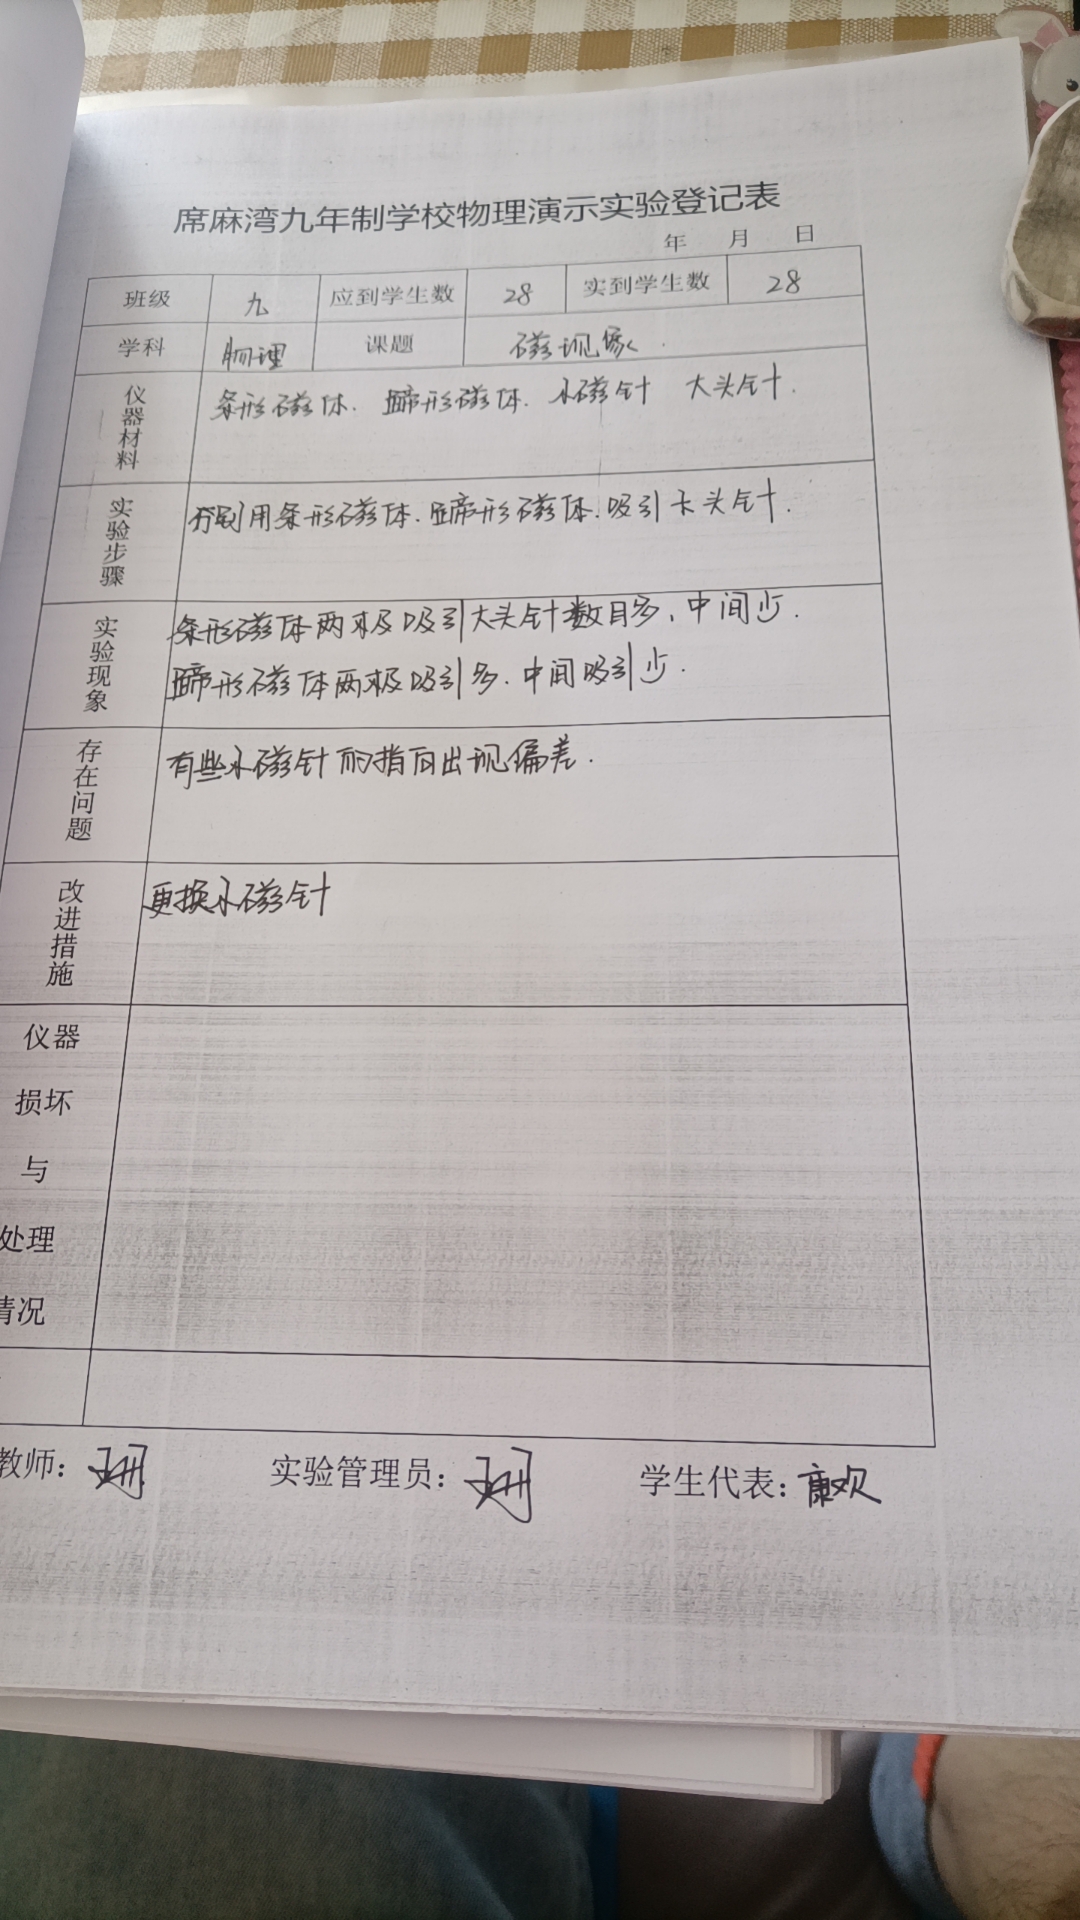 席麻湾九年制学校物理演示实验登记表
年 月 日
班级 九 应到学生数 28 实到学生数 28
学科 物理 课题 磁现象.
仪器材料 条形磁体. 蹄形磁体. 小磁针 大头针.
实验步骤 分别用条形磁体.蹄形磁体.吸引大头针.
实验现象 条形磁体两极吸引大头针数目多,中间少.
蹄形磁体两极吸引多.中间吸引少.
存在问题 有些小磁针的指向出现偏差.
改进措施 更换小磁针
仪器
损坏
与
处理
情况
教师: 实验管理员: 学生代表:康欢